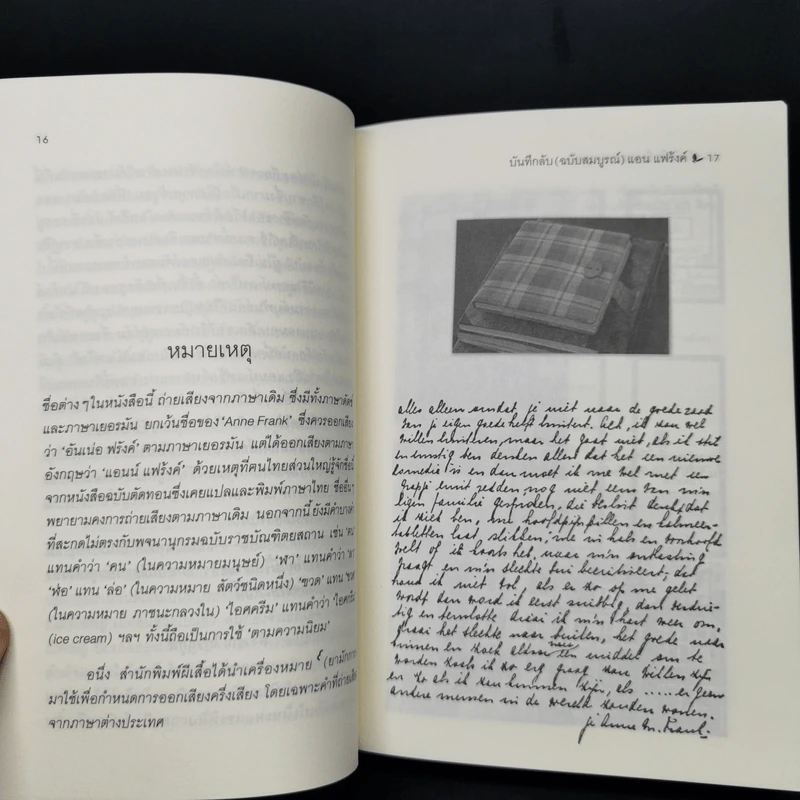 16
หมายเหตุ
ชื่อต่าง ๆในหนังสือนี้ ถ่ายเสียงจากภาษาเดิม ซึ่งมีทั้งภาษาดัตช์
และภาษาเยอรมัน ยกเว้นชื่อของ 'Anne Frank' ซึ่งควรออกเสียง
ว่า 'อันเน่อ ฟรังค์' ตามภาษาเยอรมัน แต่ได้ออกเสียงตามภาษา
อังกฤษว่า 'แอนน์ แฟร้งค์' ด้วยเหตุที่คนไทยส่วนใหญ่รู้จักชื่อนี้
จากหนังสือฉบับตัดทอนซึ่งเคยแปลและพิมพ์ภาษาไทย ชื่ออื่นๆ
พยายามคงการถ่ายเสียงตามภาษาเดิม นอกจากนี้ยังมีคำบางคำ
ที่สะกดไม่ตรงกับพจนานุกรมฉบับราชบัณฑิตยสถาน เช่น 'ฅน'
แทนคำว่า 'คน' (ในความหมายมนุษย์) 'ฬา' แทนคำว่า
'ฬ่อ' แทน 'ล่อ' (ในความหมาย สัตว์ชนิดหนึ่ง) 'ฃวด' แทน
(ในความหมาย ภาชนะกลวงใน) 'ไอศครีม' แทนคำว่า
(ice cream) ฯลฯ ทั้งนี้ถือเป็นการใช้ 'ตามความนิยม'
อนึ่ง สำนักพิมพ์ผีเสื้อได้นำเครื่องหมาย (ยามักการ
มาใช้เพื่อกำหนดการออกเสียงครึ่งเสียง โดยเฉพาะคำที่ถ่ายเสียง
จากภาษาต่างประเทศ
บันทึกลับ (ฉบับสมบูรณ์) แอน แฟร้งค์ 17
alles alleen omdat je niet naar de goede raad
van je eigen goede helft luistert. Och, ik zou wel
willen luisteren, maar het gaat niet, als ik stil
en ernstig ben denken allen dat het een nieuwe
comedie is en dan moet ik me wel met een
grapje eruit redden, nog niet eens van m'n
eigen familie gesproken, die beslist denkt dat
ik ziek ben, me hoofdpijnpillen en kalmeer-
tabletten laat slikken, me in hals en voorhoofd
voelt of ik koorts heb, naar m'n ontlasting
vraagt en m'n slechte bui becritiseert, dat
houd ik niet vol, als er zo op me gelet
wordt dan word ik eerst snibbig, dan verdrie-
tig en tenslotte draai ik m'n hart weer om,
draai het slechte naar buiten, het goede naar
binnen en zoek aldoor naar een middel om te
worden zoals ik zo erg graag zou willen zijn
en zo als ik zou kunnen zijn, als ..... er geen
andere mensen in de wereld zouden wonen.
je Anne M. Frank.